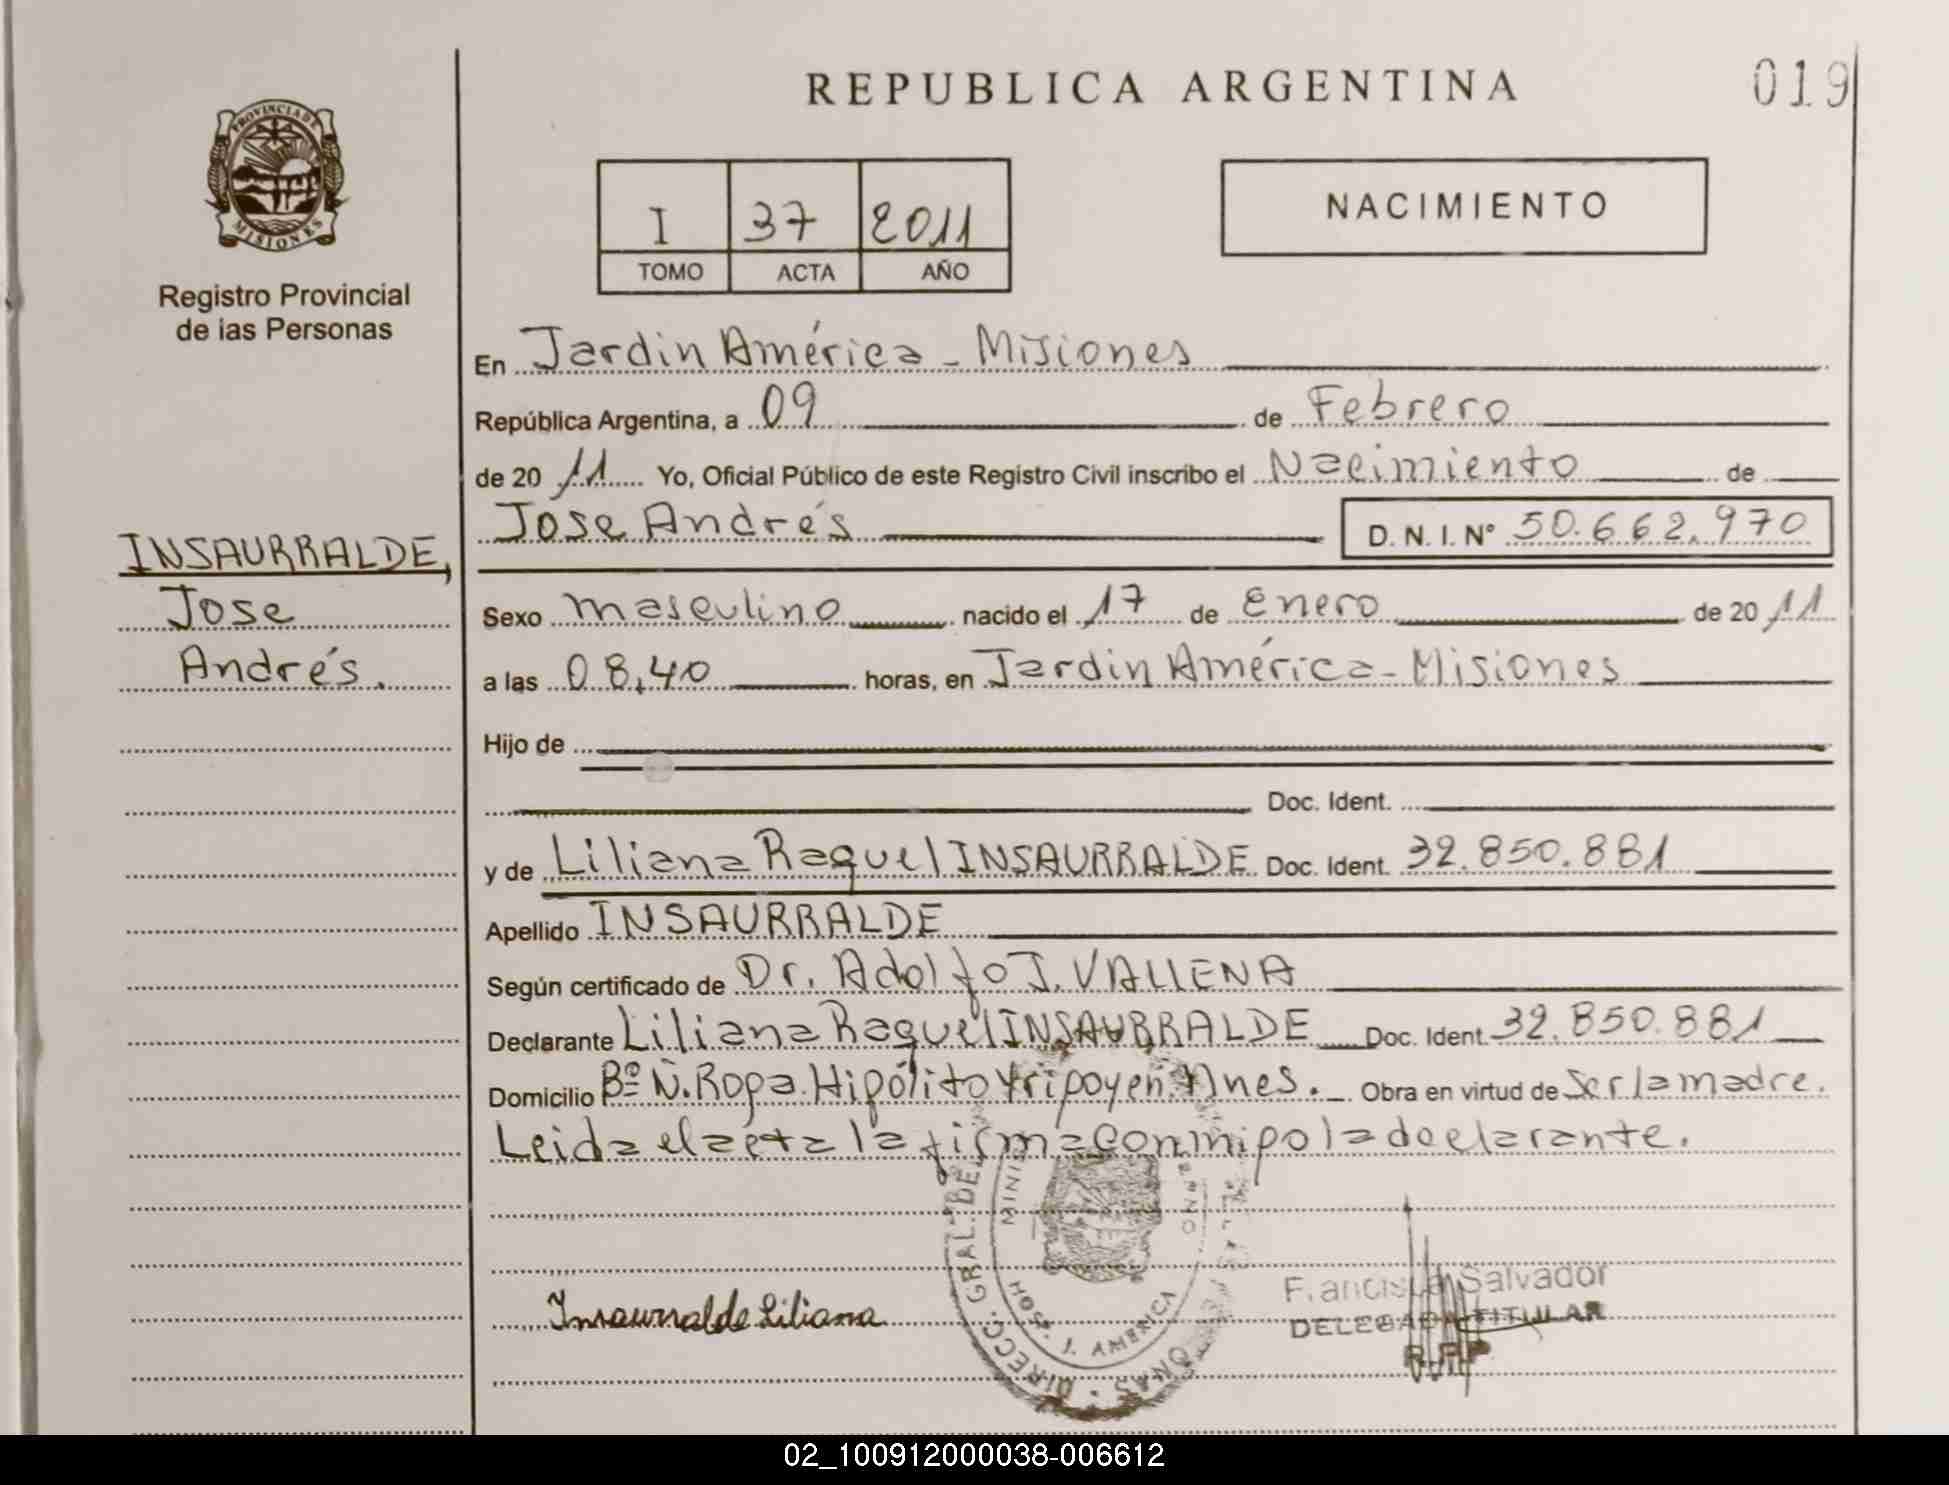 REPUBLICA ARGENTINA
019
PROVINCIA DE
MISIONES
Registro Provincial
de ias Personas
I 37 2011
TOMO ACTA AÑO
NACIMIENTO
En Jardin América - Misiones
República Argentina, a 09 de Febrero
de 20 11 Yo, Oficial Público de este Registro Civil inscribo el Nacimiento de
Jose Andrés D. N. I. N° 50.662.970
INSAURRALDE,
Jose
Andrés.
Sexo masculino nacido el 17 de Enero de 20 11
a las 08,40 horas, en Jardin América - Misiones
Hijo de
Doc. Ident.
y de Liliana Raquel INSAURRALDE Doc. Ident. 32.850.881
Apellido INSAURRALDE
Según certificado de Dr. Adolfo J. VALLENA
Declarante Liliana Raquel INSAURRALDE Doc. Ident. 32.850.881
Domicilio Bº Ñ. Ropa. Hipólito Yripoyen. Mnes. Obra en virtud de Ser la madre.
Leida el acta la firma conmipo la declarante.
DIRECC. GRAL. DE
J. AMERICA
Insaurralde Liliana
Salvador
TITULAR
02_100912000038-006612